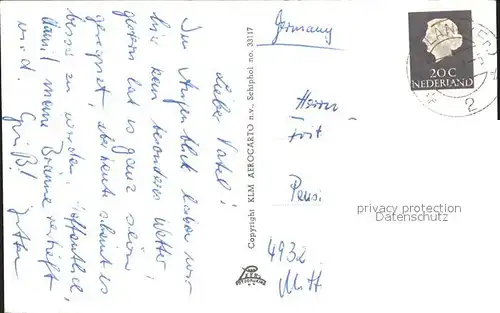 Liebe Vatel!
Im Augenblick haben wir
hier kein besonderes Wetter,
gestern hat es ganz schön
geregnet, aber heute scheint es
besser zu werden. Hoffentlich,
damit meine Bräune vertieft
wird. Gruß!
Jutta
Copyright KLM AEROCARTO n.v., Schiphol no. 33117
Germany
Herrn
Pensi
4932
Mitt
20 C
NEDERLAND
2
privacy protection
Datenschutz